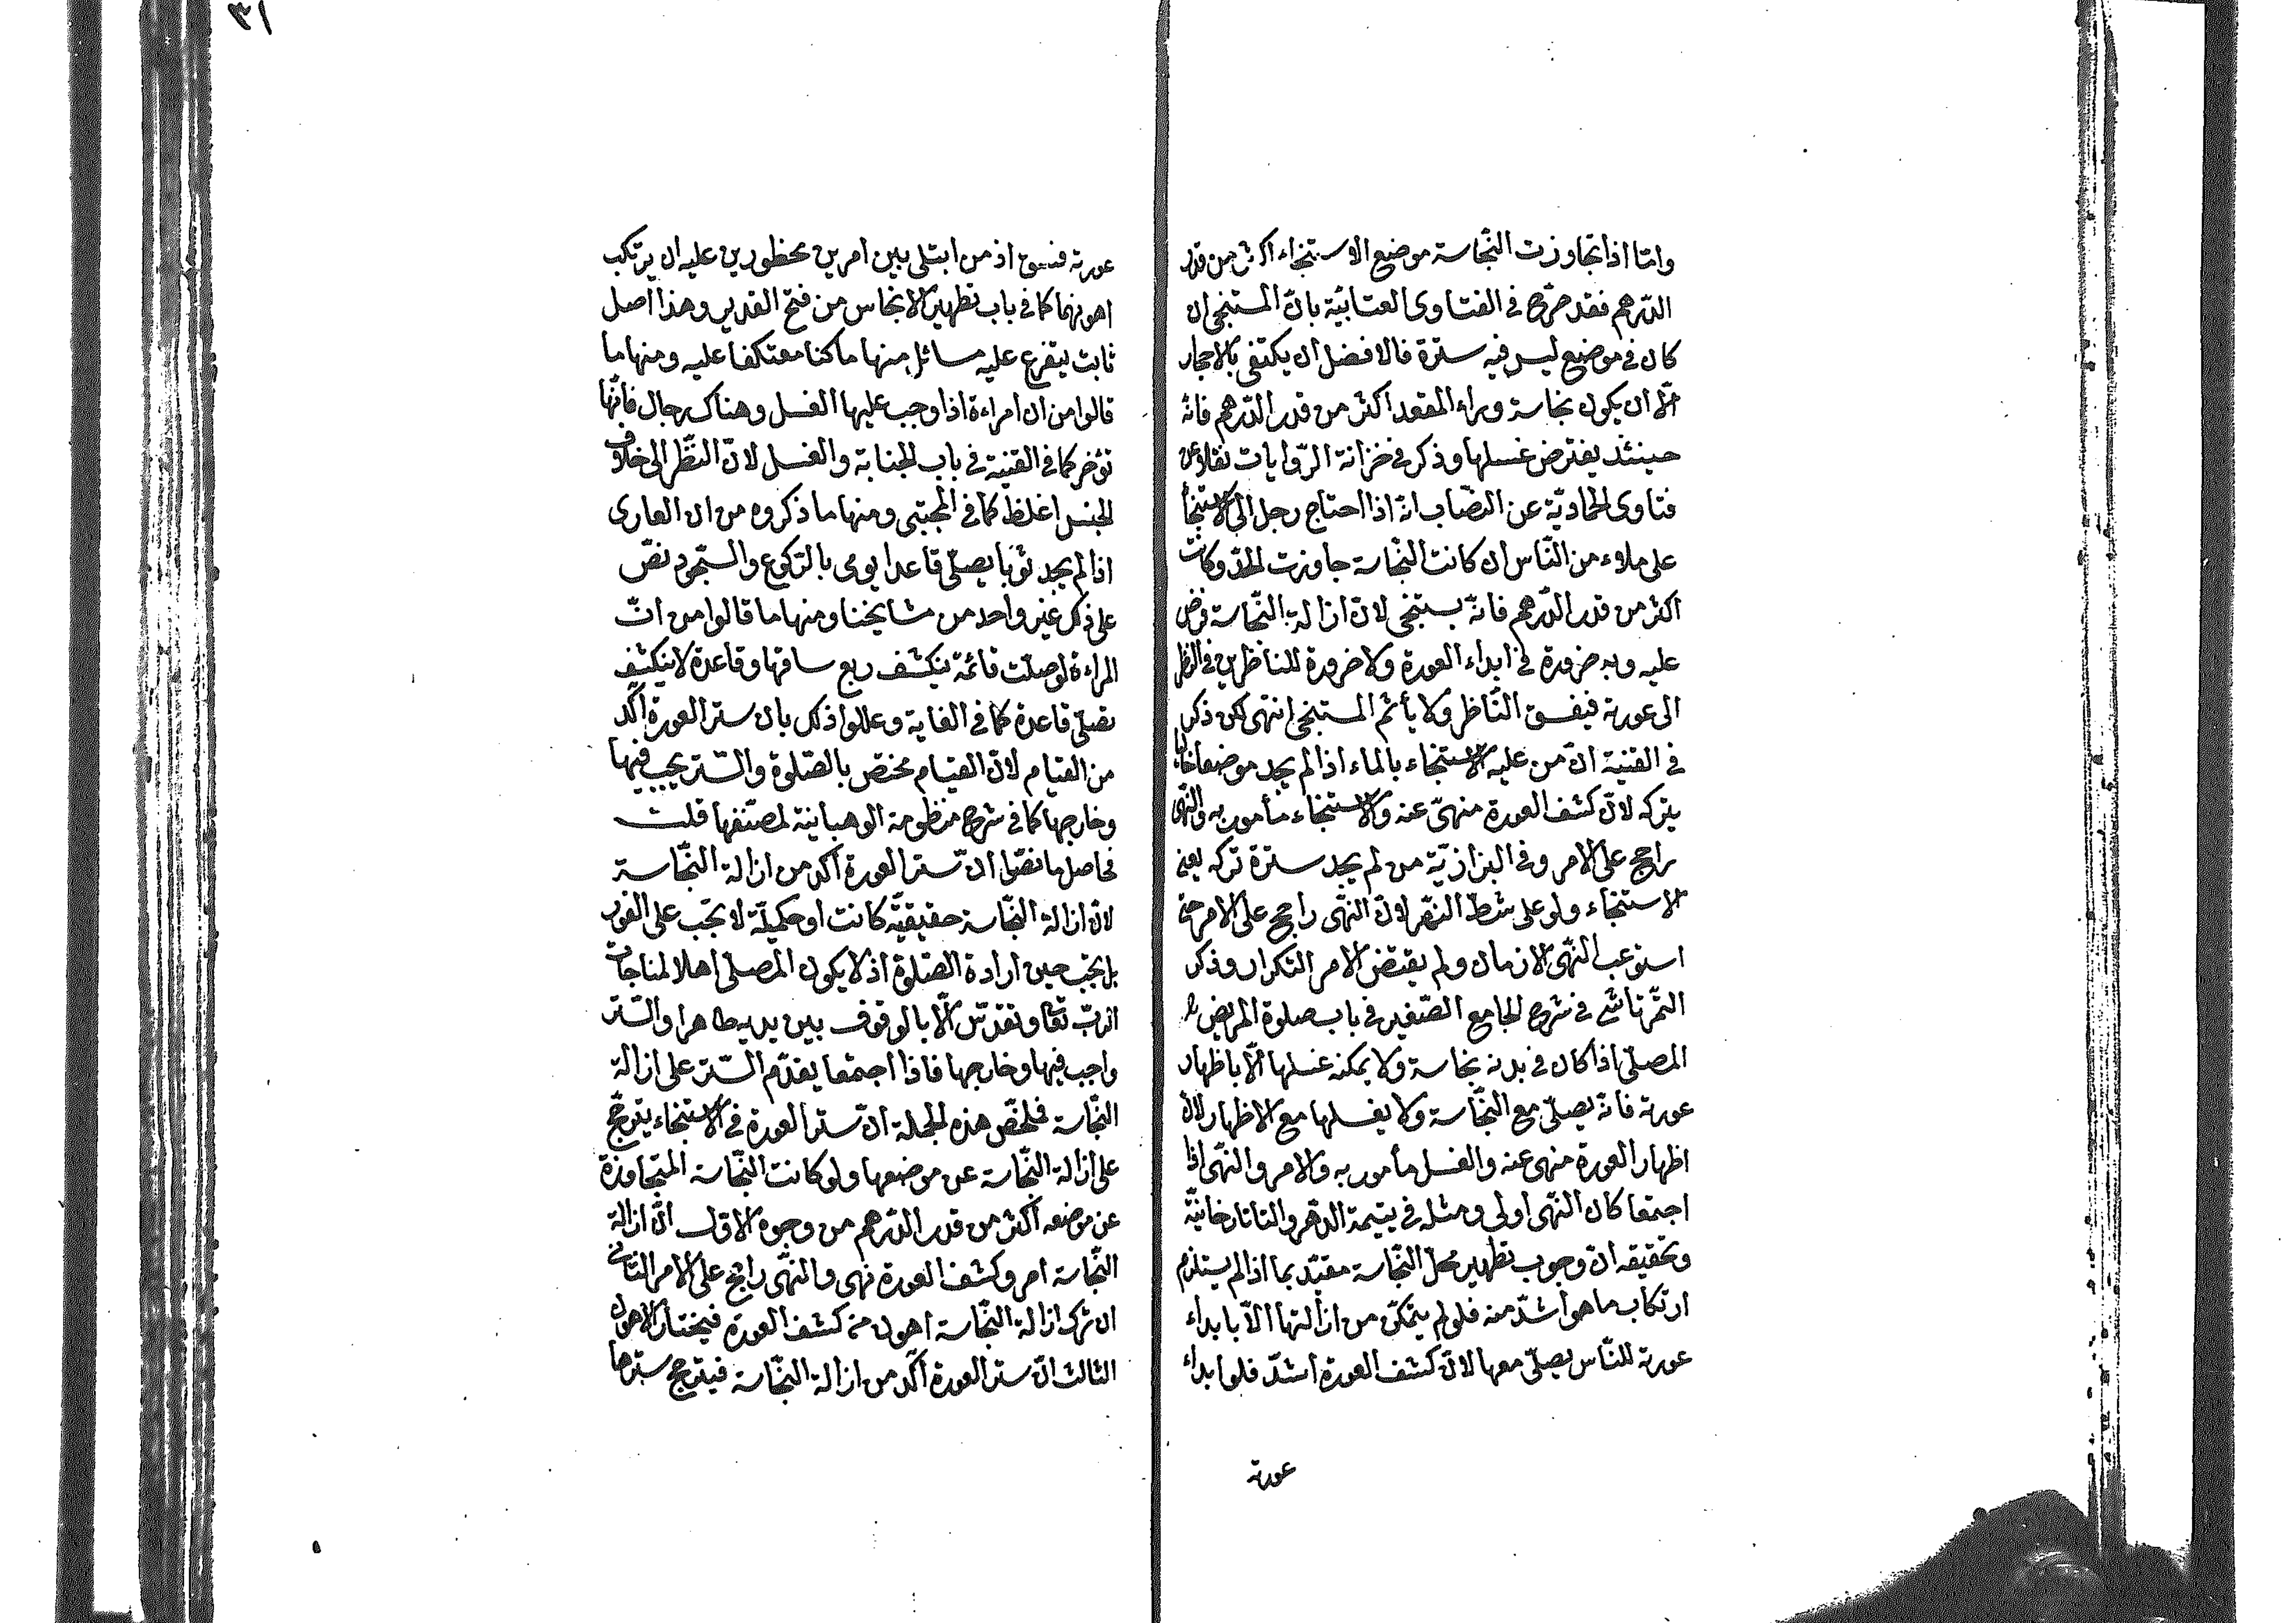 ٣١
وامّا اذا تجاوزت النّجاسة موضع الاستنجاء اكثر من قدر
الدّرهم فقد صرّح فى الفتاوى العتابيّة بانّ المستنجى ان
كان فى موضع ليس فيه سترة فالافضل ان يكتفى بالاحجار
الّا ان يكون نجاسة وراء المقعد اكثر من قدر الدّرهم فانّه
حينئذ يفترض غسلها وذكر فى خزانة الرّوايات نقلا عن
فتاوى الحماديّة عن النصّاب انّه اذا احتاج رجل الى الاستنجا
على ملاء من النّاس ان كانت النّجاسة جاوزت الحدّ وكانت
اكثر من قدر الدّرهم فانّه يستنجى لانّ ازالة النّجاسة فرض
عليه وبه ضرورة فى ابداء العورة ولا ضرورة للناظرين فى النظر
الى عورته فيفسق النّاظر ولا يأثم المستنجى انتهى لكن ذكر
فى القنية انّ من عليه الاستنجاء بالماء اذا لم يجد موضعا خاليا
يتركه لانّ كشف العورة منهىّ عنه والاستنجاء مأمور به والنّهى
راجح على الامر وفى البزازيّة من لم يجد سترة تركه يعنى
الاستنجاء ولو على شطّ النهر لانّ النّهى راجح على الامر حتى
استوعب النّهى الازمان ولم يقتض الامر التكرار وذكر
التّمرتاشى فى شرح الجامع الصّغير فى باب صلوة المريض
المصلّى اذا كان فى بدنه نجاسة ولا يمكنه غسلها الّا باظهار
عورته فانّه يصلّى مع النّجّاسة ولا يغسلها مع الاظهار لانّ
اظهار العورة منهى عنه والغسل مأمور به والامر والنّهى اذا
اجتمعا كان النّهى اولى ومثله فى يتيمة الدّهر والتاتارخانيّة
وتحقيقه انّ وجوب تطهير محلّ النّجاسة مقيّد بما اذا لم يستلزم
ارتكاب ما هو أشدّ منه فلو لم يتمكّن من ازالتها الّا بابداء
عورته للنّاس يصلّى معها لانّ كشف العورة أشدّ فلو ابداء
عورته
عورته فسق اذ من ابتلى بين امرين محظورين عليه ان يرتكب
اهونهما كما فى باب تطهير الانجاس من فتح القدير وهذا اصل
ثابت يتفرع عليه مسائل منها ما كنا معتكفا عليه ومنها ما
قالوا من ان امراءة اذا وجب عليها الغسل وهناك رجال فانّها
تؤخر كما فى القنية فى باب الجنابة والغسل لانّ النّظر الى خلاف
الجنس اغلظ كما فى المجتبى ومنها ما ذكروه من ان العارى
اذا لم يجد ثوبا يصلّى قاعدا يومى بالرّكوع والسّجود نصّ
على ذلك غير واحد من مشايخنا ومنها ما قالوا من انّ
المراءة لو صلّت قائمة ينكشف ربع ساقها وقاعدة لا ينكشف
تصلّى قاعدة كما فى الغاية وعللوا ذلك بان ستر العورة آكد
من القيام لانّ القيام مختصّ بالصّلوة والسّتر يجب فيها
وخارجها كما فى شرح منظومة الوهبانية لمصنّفها قلت
فحاصل ما نصّوا انّ ستر العورة آكد من ازالة النّجاسة
لانّ ازالة النّجاسة حقيقيّة كانت او حكميّة لا تجب على الفور
بل تجب حين ارادة الصّلوة اذ لا يكون المصلى اهلا لمناجات
الرّبّ تعا وتقدّس الّا بالوقوف بين يديه طاهرا والسّتر
واجب فيها وخارجها فاذا اجتمعا يقدّم السّتر على ازالة
النّجاسة فلخّص هذه الجملة انّ ستر العورة فى الاستنجاء يترجّح
على ازالة النّجاسة عن موضعها ولو كانت النّجاسة المتجاوزة
عن موضعه اكثر من قدر الدّرهم من وجوه الاوّل انّ ازالة
النّجاسة امر وكشف العورة نهى والنّهى راجح على الامر الثانى
ان ترك ازالة النّجاسة اهون من كشف العورة فيختار الاهون
الثالث انّ ستر العورة آكد من ازالة النّجاسة فيترجح سترها